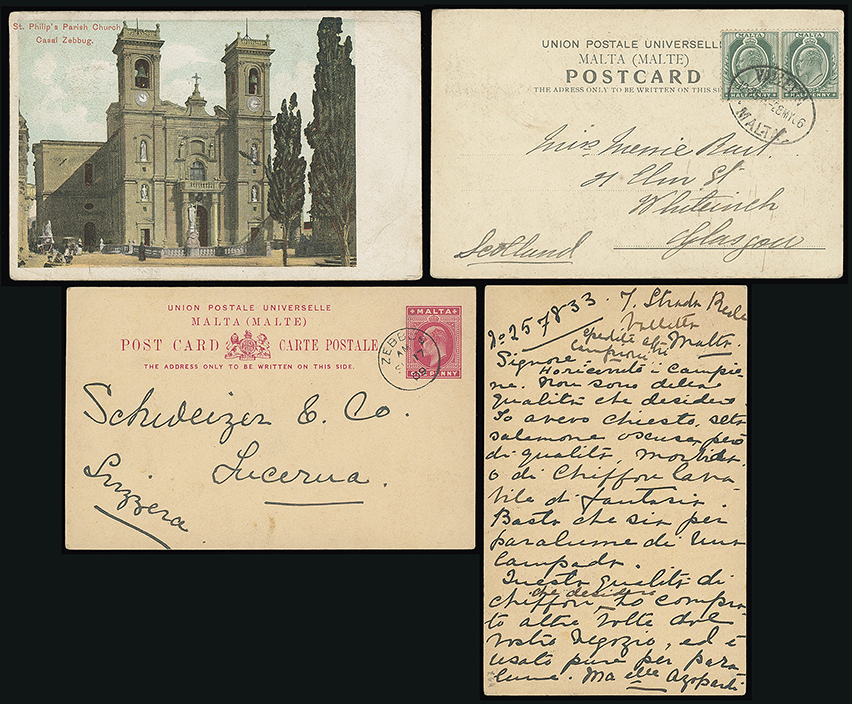 St. Philip's Parish Church
Casal Zebbug.
UNION POSTALE UNIVERSELLE
MALTA (MALTE)
POSTCARD
THE ADRESS ONLY TO BE WRITTEN ON THIS SI
MALTA
MALTA
HALFPENNY
HALFPENNY
VALLETTA
MALTA
Miss
21 Elm St
Whiteinch
Glasgow
Scotland
UNION POSTALE UNIVERSELLE
MALTA (MALTE)
POST CARD CARTE POSTALE
THE ADDRESS ONLY TO BE WRITTEN ON THIS SIDE.
MALTA
PENNY
ZEBBUG
AM
17
09
Schweizer & Co.
Lucerna.
Svizzera
257833. 7, Strada Reale
Valletta
Malta.
Signore
Ho ricevuto i campio-
ne. Non sono della
qualità che desidero.
Io avevo chiesto seta
salamone oscuro, però
di qualità, morbida
o di Chiffon lava-
bile di fantasia.
Basta che sia per
paralume di una
lampada.
Questa qualità di
che desidero
chiffon, ho compra-
to altre volte dal
vostro negozio, ed è
usato pure per para
lume. Azopardi